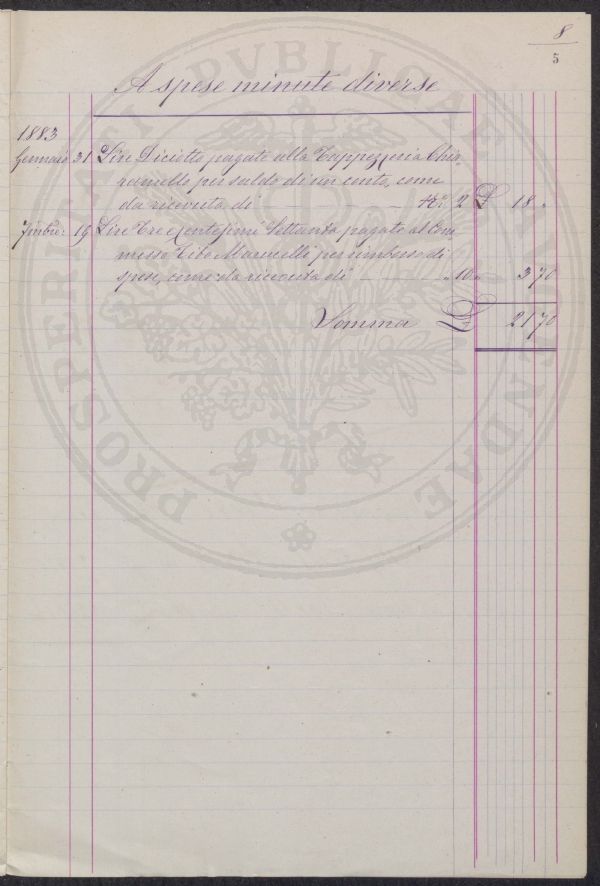 8
5
A spese minute diverse
1883
Gennaio 31 Lire Diciotto pagate alla Tappezzeria Chia-
ramello per saldo di un conto, come
da ricevuta di No: 2 L 18 "
7mbre: 19 Lire Tre e Centesimi Settanta pagate al Com-
messo Tito Marucelli per rimborso di
spese, come da ricevuta di " 10 " 3 70
Somma L 21 70
PROSPERITATI PVBLICAE AVGENDAE